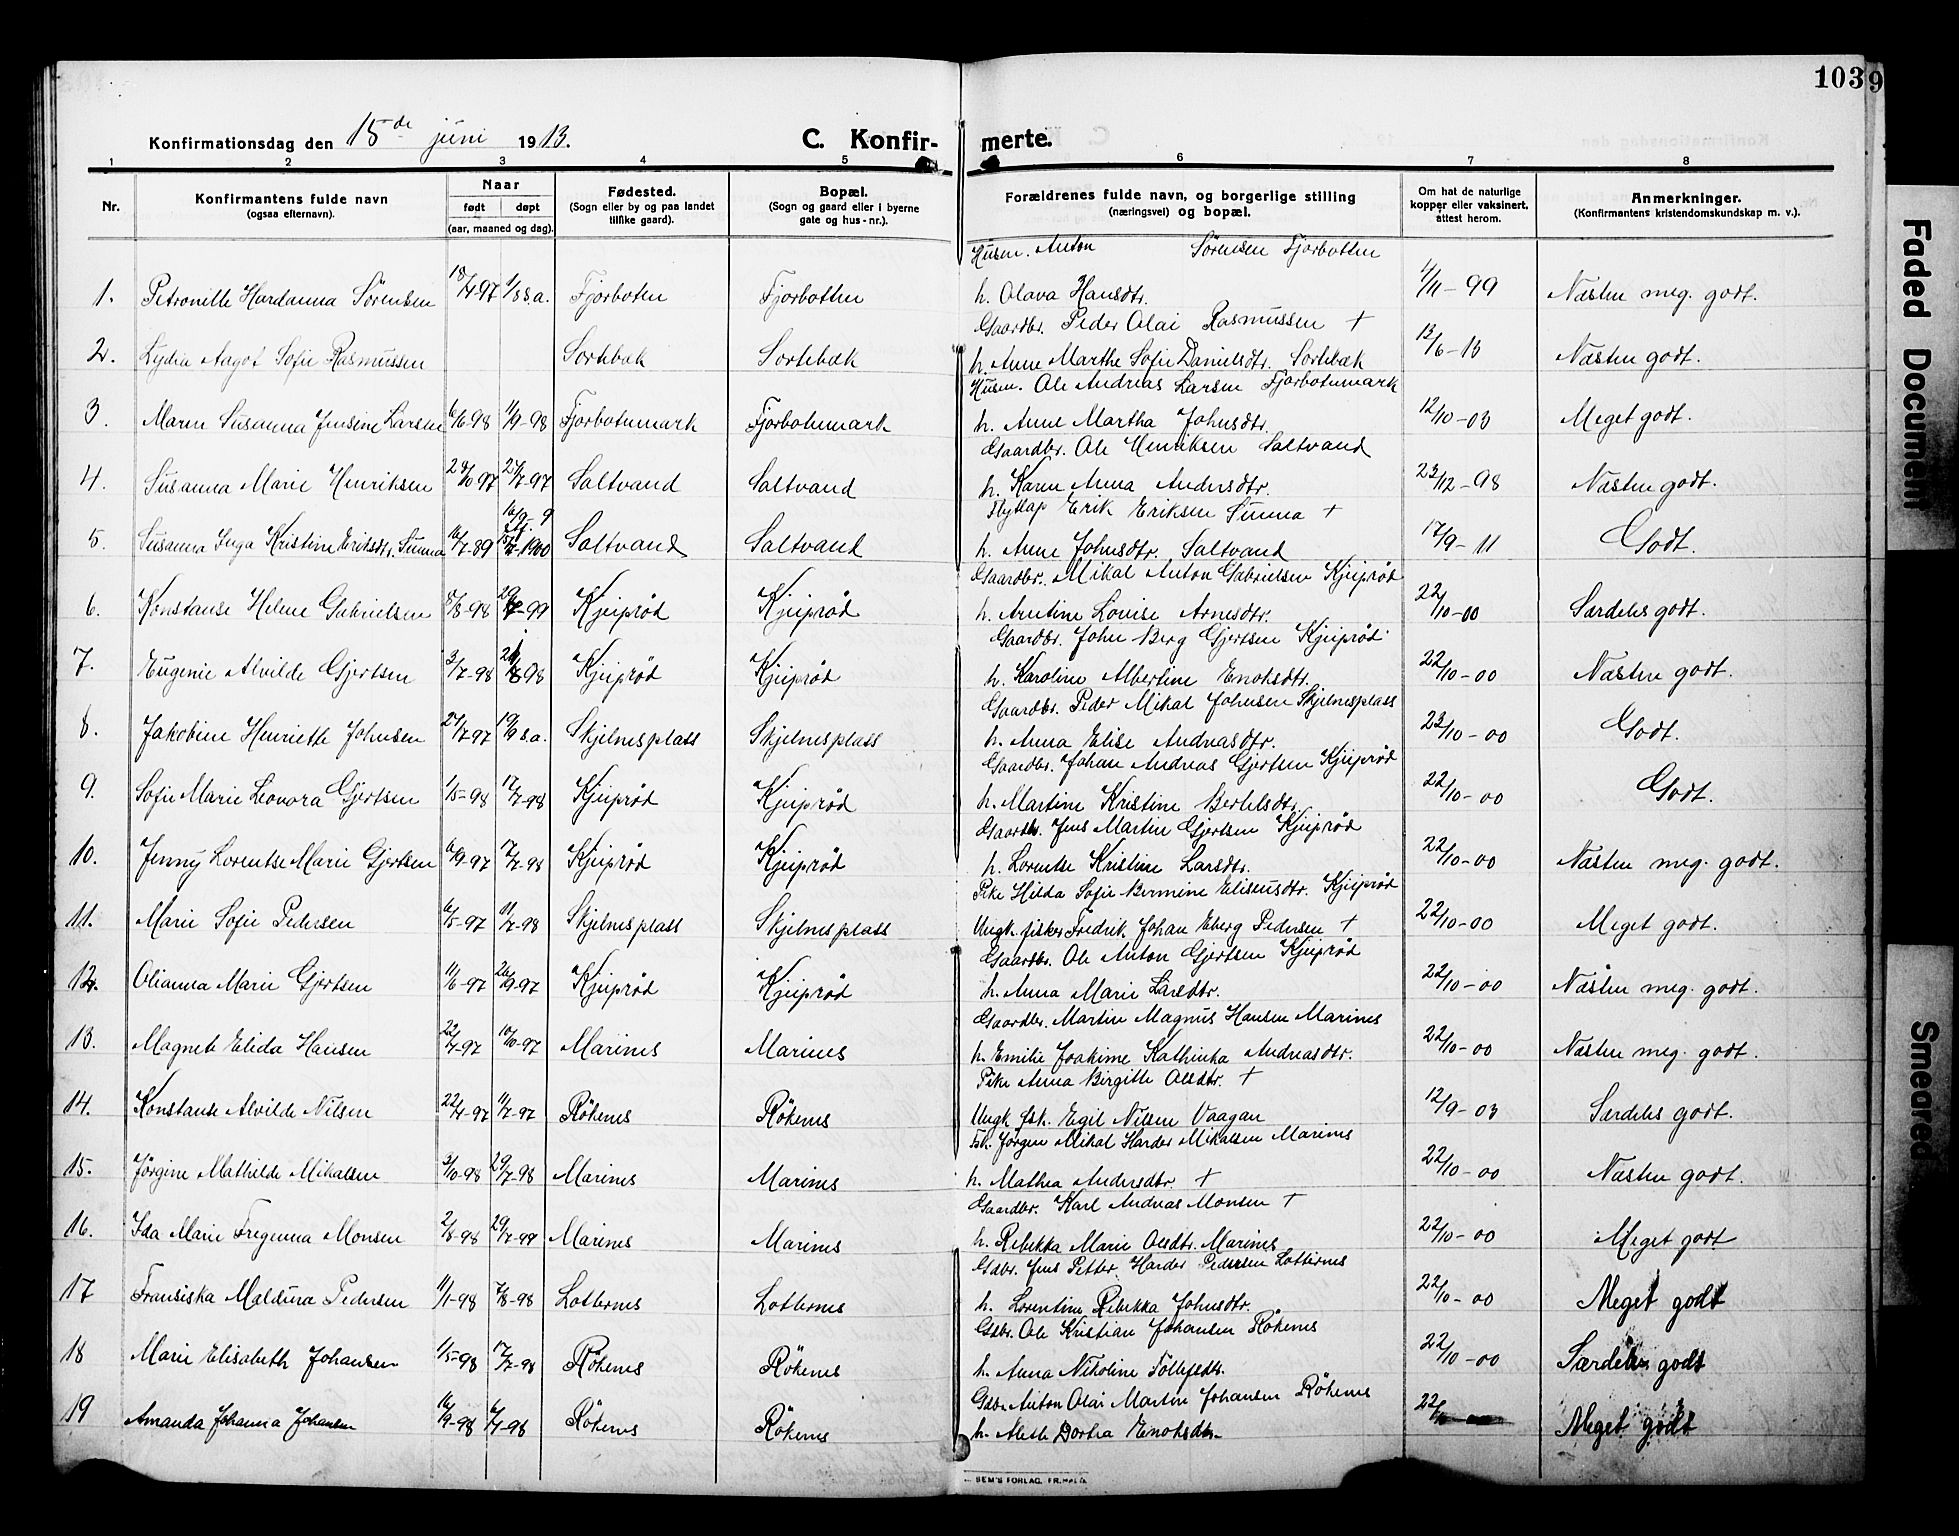 103
9
Konfirmationsdag den 15de juni 1913.
C. Konfir-
merte.
1 2 3 4 5 6 7 8
Nr.
Konfirmantens fulde navn
(ogsaa efternavn).
Naar
født døpt
(aar, maaned og dag).
Fødested.
(Sogn eller by og paa landet
tillike gaard).
Bopæl.
(Sogn og gaard eller i byerne
gate og hus-nr.).
Forældrenes fulde navn, og borgerlige stilling
(næringsvei) og bopæl.
Om hat de naturlige
kopper eller vaksinert,
attest herom.
Anmerkninger.
(Konfirmantens kristendomskundskap m. v.).
Husm. Anton Sørensen Fjorbotten
1. Petronille Hardanna Sörensen 18/4-97 1/8 s.a. Fjorboten Fjorbotten h. Olava Hansdtr. 1/11-99 Næsten meg. godt.
Gaardbr. Peder Olai Rasmussen +
2. Lydia Aagot Sofie Rasmussen Sortebæk Sortebæk h. Anne Marthe Sofie Danielsdtr. Sortebæk 13/6-13 Næsten godt.
Husm. Ole Andreas Larsen Fjorbotnmark
3. Maren Susanna Jensine Larsen 6/6-98 11/9-98 Fjorbotnmark Fjorbotnmark h. Anne Martha Johnsdtr. 12/10-03 Meget godt.
Gaardbr. Ole Henriksen Saltvand
4. Susanna Marie Henriksen Saltvand Saltvand h. Karen Anna Andersdtr. 23/12-98 Næsten godt.
Flytlap Erik Eriksen Sunna +
5. Susanna Inga Kristine Eriksdtr. Sunna 16/7-89 Saltvand Saltvand h. Anne Johnsdtr. Saltvand 17/9-11 Godt.
Gaardbr. Mikal Anton Gabrielsen Kjeiprød
6. Konstanse Helene Gabrielsen 8/8-98 Kjeiprød Kjeiprød h. Arntine Lovise Arnesdtr. 22/10-00 Særdeles godt.
Gaardbr. John Berg Gjertsen Kjeiprød
7. Eugenie Alvilde Gjertsen 3/7-98 Kjeiprød Kjeiprød h. Karoline Albertine Enoksdtr. 22/10-00 Næsten godt.
Gaardbr. Peder Mikal Johnsen Skjelnesplass
8. Jakobine Henriette Johnsen 27/7-97 19/9 s.a. Skjelnesplass Skjelnesplass h. Anna Elise Andreasdtr. 23/10-00 Godt.
Gaardbr. Johan Andreas Gjertsen Kjeiprød
9. Sofie Marie Leonora Gjertsen 1/5-98 17/7-98 Kjeiprød Kjeiprød h. Martine Kristine Bertelsdtr. 22/10-00 Godt.
Gaardbr. Jens Martin Gjertsen Kjeiprød
10. Jenny Lorentse Marie Gjertsen 6/9-97 17/7-98 Kjeiprød Kjeiprød h. Lorentse Kristine Larsdtr. 22/10-00 Næsten meg. godt.
Pike Hilda Sofie Bermine Eliseusdtr. Kjeiprød
11. Marie Sofie Pedersen 6/5-97 11/7-98 Skjelnesplass Skjelnesplass Ungk. fisker Fredrik Johan Eberg Pedersen + 22/10-00 Meget godt.
Gaardbr. Ole Anton Gjertsen Kjeiprød
12. Olianna Marie Gjertsen 11/6-97 26/9-97 Kjeiprød Kjeiprød h. Anna Marie Larsdtr. 22/10-00 Næsten meg. godt.
Gaardbr. Martin Magnus Hansen Marines
13. Magnete Elida Hansen 22/7-97 10/10-97 Marines Marines h. Emilie Joakime Kathinka Andreasdtr. 22/10-00 Næsten meg. godt.
Pike Anna Birgitte Olsdtr. +
14. Konstanse Alvilde Nilsen 22/4-97 11/7-97 Rökenes Rökenes Ungk. fsk. Egil Nilsen Vaagan 12/9-03 Særdeles godt.
Fsk. Jörgen Mikal Harder Mikalsen Marines
15. Jörgine Mathilde Mikalsen 29/7-98 Marines Marines h. Mathea Andersdtr. + 22/10-00 Næsten godt.
Gaardbr. Karl Andreas Monsen +
16. Ida Marie Fregenna Monsen 2/8-98 Marines Marines h. Rebekka Marie Olsdtr. Marines 22/10-00 Meget godt
Gdbr. Jens Petter Harder Pedersen Lotternes
17 Fransiska Maldura Pedersen 11/1-98 7/8-98 Lotternes Lotternes h. Lorentine Rebekka Johnsdtr. 22/10-00 Meget godt
Gdbr. Ole Kristian Johansen Rökenes
18 Marie Elisabeth Johansen 1/5-98 17/7-98 Rökenes Rökenes h. Anna Nikoline Tollefsdtr. 22/10-00 Særdeles godt
Gdbr. Anton Olai Martin Johansen Rökenes
19 Amanda Johanna Johansen Rökenes Rökenes h. Alette Dortea Enoksdtr. Meget godt
SEM'S FORLAG, FR.HALD.
Faded Document
Smeared